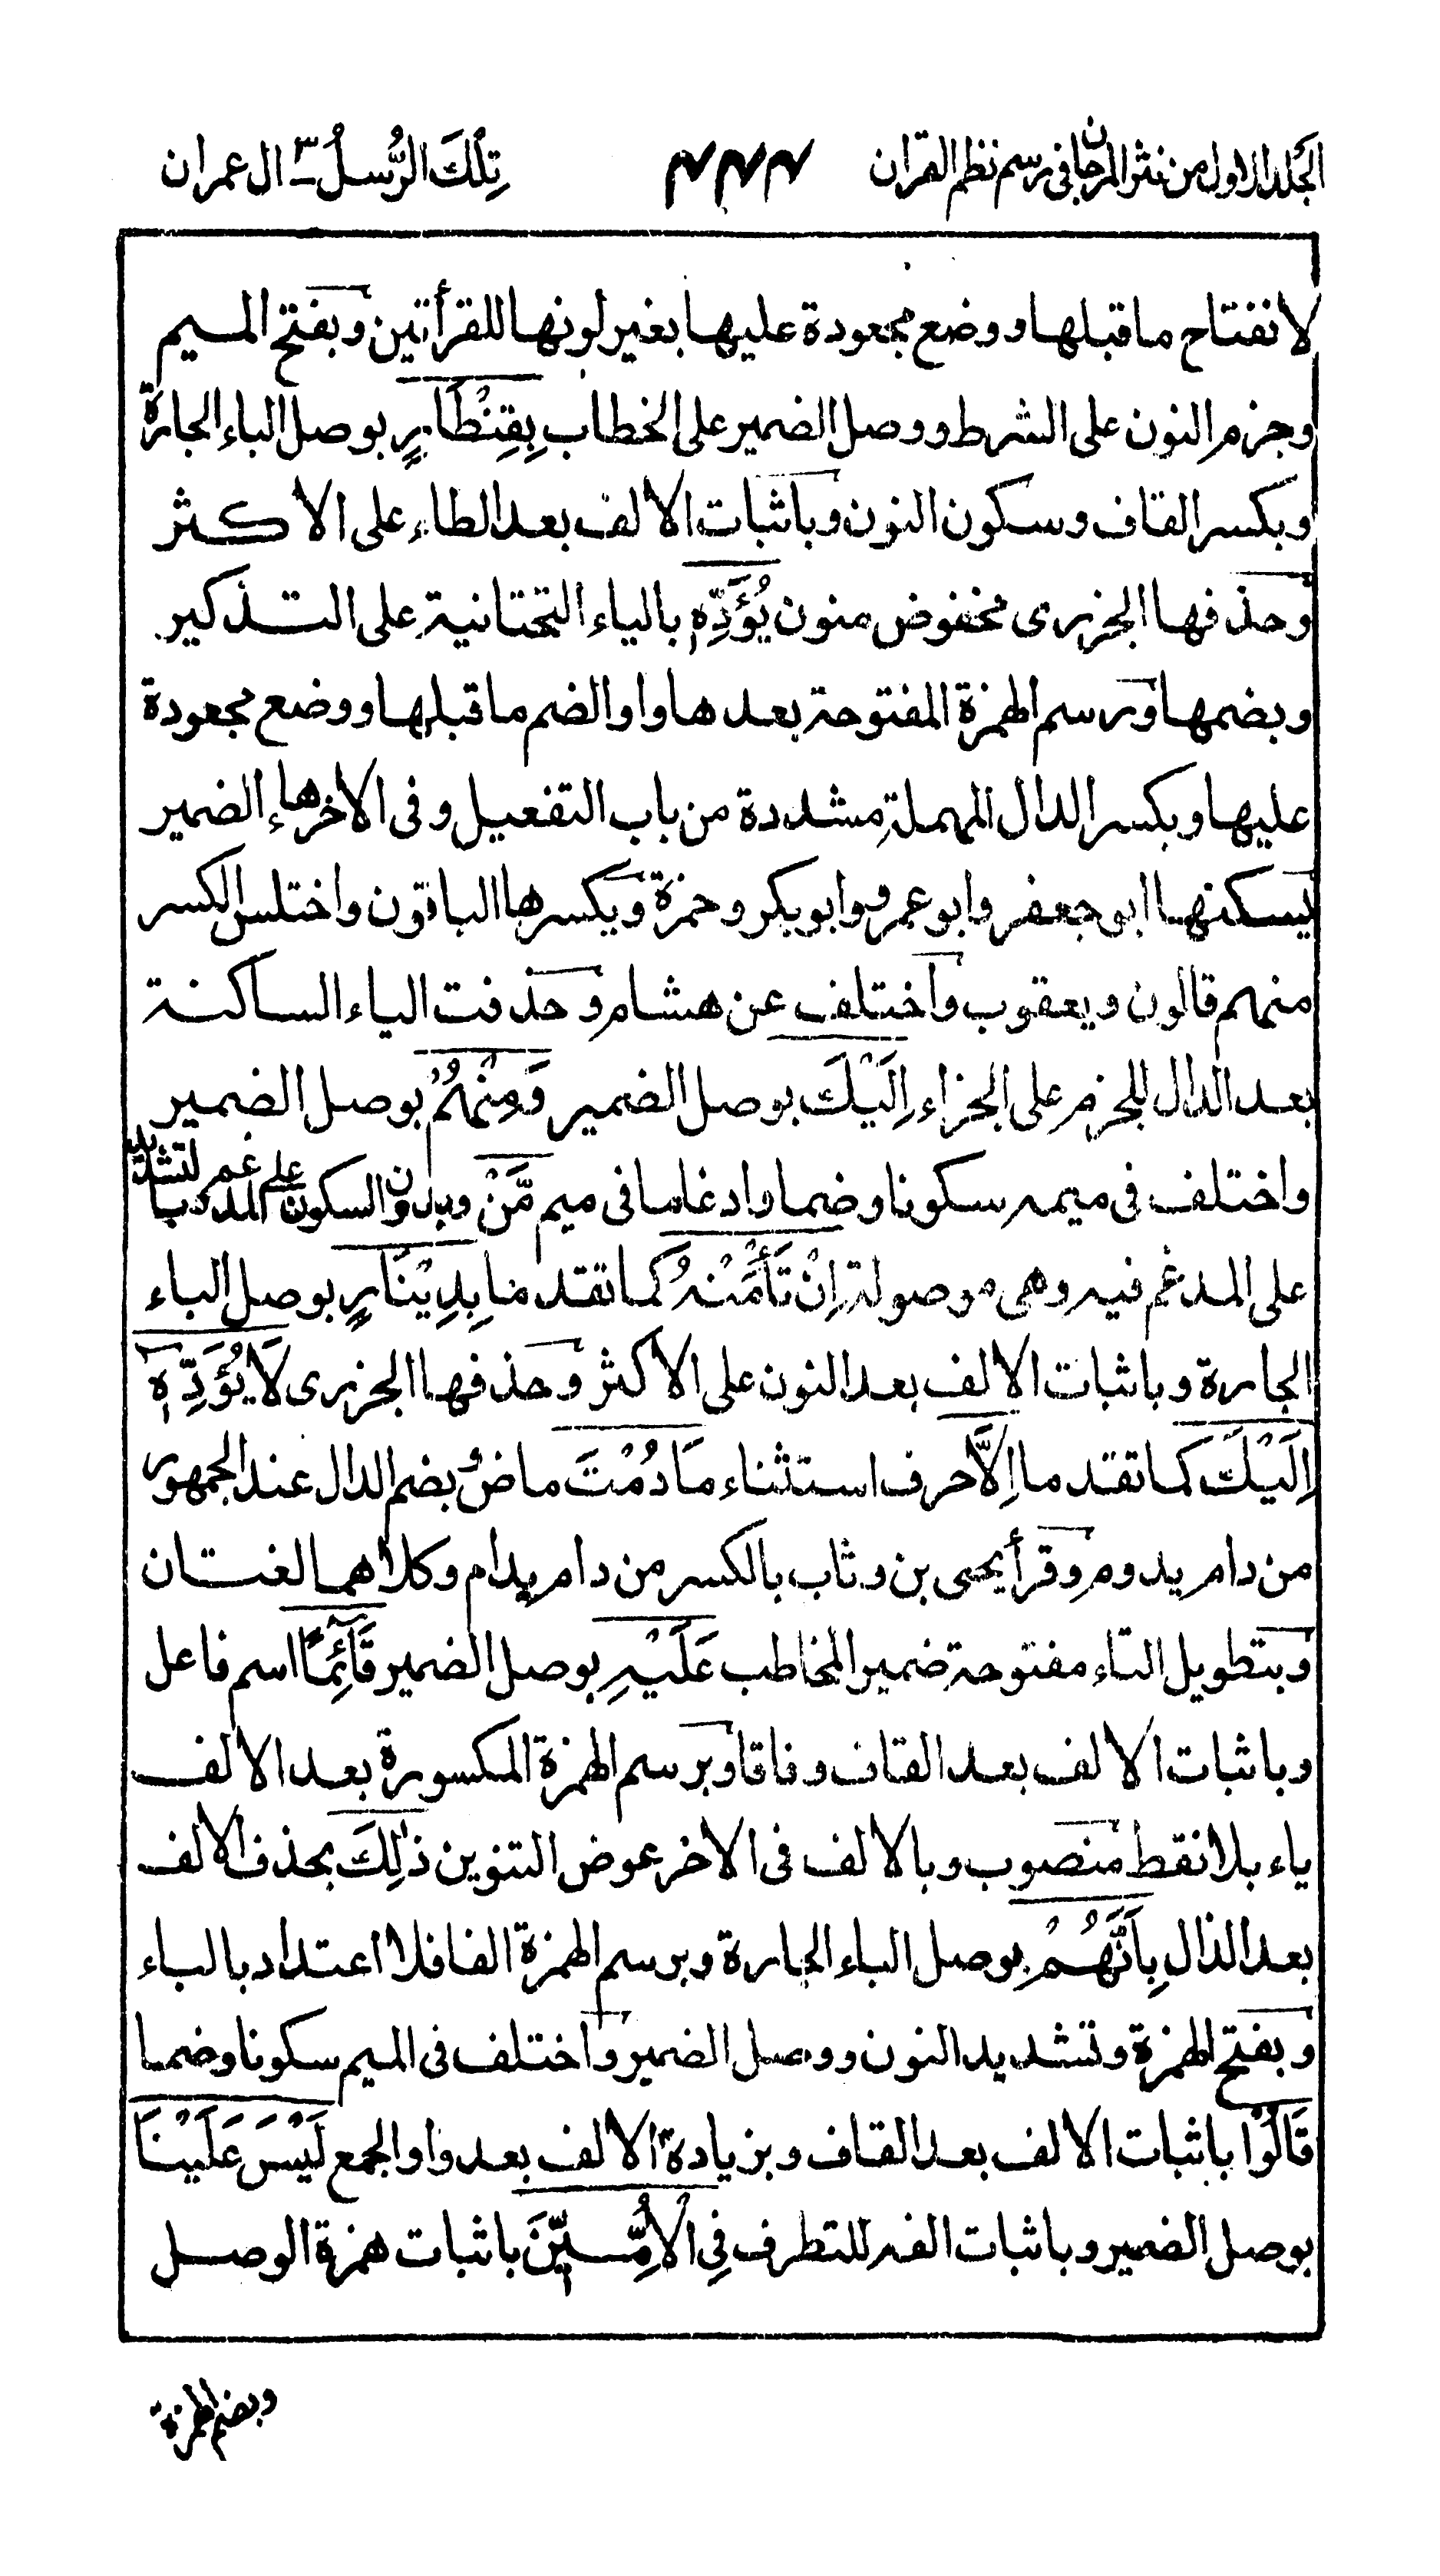 المجلد الاول من نثر المرجان فى رسم نظم القران ٤٤٤ تِلْكَ الرُّسلُ ٣ ال عمران
لانفتاح ما قبلها ووضع مجعودة عليها بغير لونها للقرأتين وبفتح الميم
وجزم النون على الشرط ووصل الضمير على الخطاب بِقِنْطَارٍ بوصل الباء الجارة
وبكسر القاف وسكون النون وباثبات الالف بعد الطاء على الاكثر
وحذفها الجزرى مخفوض منون يُؤَدِّهٖ بالياء التحتانية على التذكير
وبضمها ورسم الهمزة المفتوحة بعدها واوا لضم ما قبلها ووضع مجعودة
عليها وبكسر الدال المهملة مشددة من باب التفعيل وفى الاخر هاء الضمير
يسكنها ابو جعفر وابو عمرو وابو بكر وحمزة ويكسرها الباقون واختلس الكسر
منهم قالون ويعقوب واختلف عن هشام وحذفت الياء الساكنة
بعد الدال للجزم على الجزاء اِلَيْكَ بوصل الضمير وَمِنْهُمْ بوصل الضمير
واختلف فى ميمه سكونا وضما وادغاما فى ميم مَّنْ وبدون السكون على المدغم وبالتشديد
على المدغم فيه وهى موصولة اِنْ تَأْمَنْهُ كما تقدما بِدِيْنَارٍ بوصل الباء
الجارة وباثبات الالف بعد النون على الاكثر وحذفها الجزرى لَا يُؤَدِّهٖ
اِلَيْكَ كما تقدما اِلَّا حرف استثناء مَادُمْتَ ماض بضم الدال عند الجمهور
من دام يدوم وقرأ يحيى بن وثاب بالكسر من دام يدام وكلاهما لغتان
وبتطويل التاء مفتوحة ضمير المخاطب عَلَيْهِ بوصل الضمير قَآئِمًا اسم فاعل
وباثبات الالف بعد القاف وفاقا وبرسم الهمزة المكسورة بعد الالف
ياء بلا نقط منصوب وبالالف فى الاخر عوض التنوين ذٰلِكَ بحذف الالف
بعد الذال بِاَنَّهُمْ بوصل الباء الجارة وبرسم الهمزة الفا فلا اعتداد بالباء
وبفتح الهمزة وتشديد النون ووصل الضمير واختلف فى الميم سكونا وضما
قَالُوْا باثبات الالف بعد القاف وبزيادة الالف بعد واو الجمع لَيْسَ عَلَيْنَا
بوصل الضمير وباثبات الفه للتطرف فِى الْاُمِّيّٖنَ باثبات همزة الوصل
وبضم الهمزة